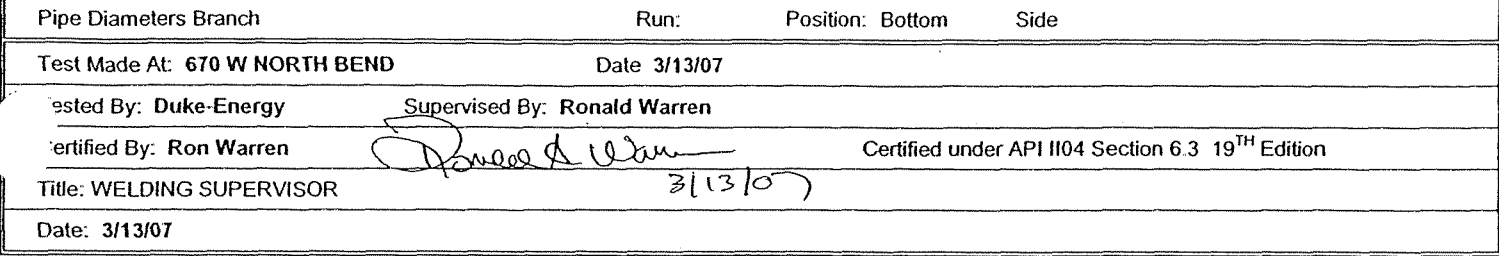 Pipe Diameters Branch Run: Position: Bottom Side
Test Made At: 670 W NORTH BEND Date 3/13/07
ested By: Duke-Energy Supervised By: Ronald Warren
ertified By: Ron Warren Certified under API II04 Section 6.3 19TH Edition
Title: WELDING SUPERVISOR 3/13/07
Date: 3/13/07